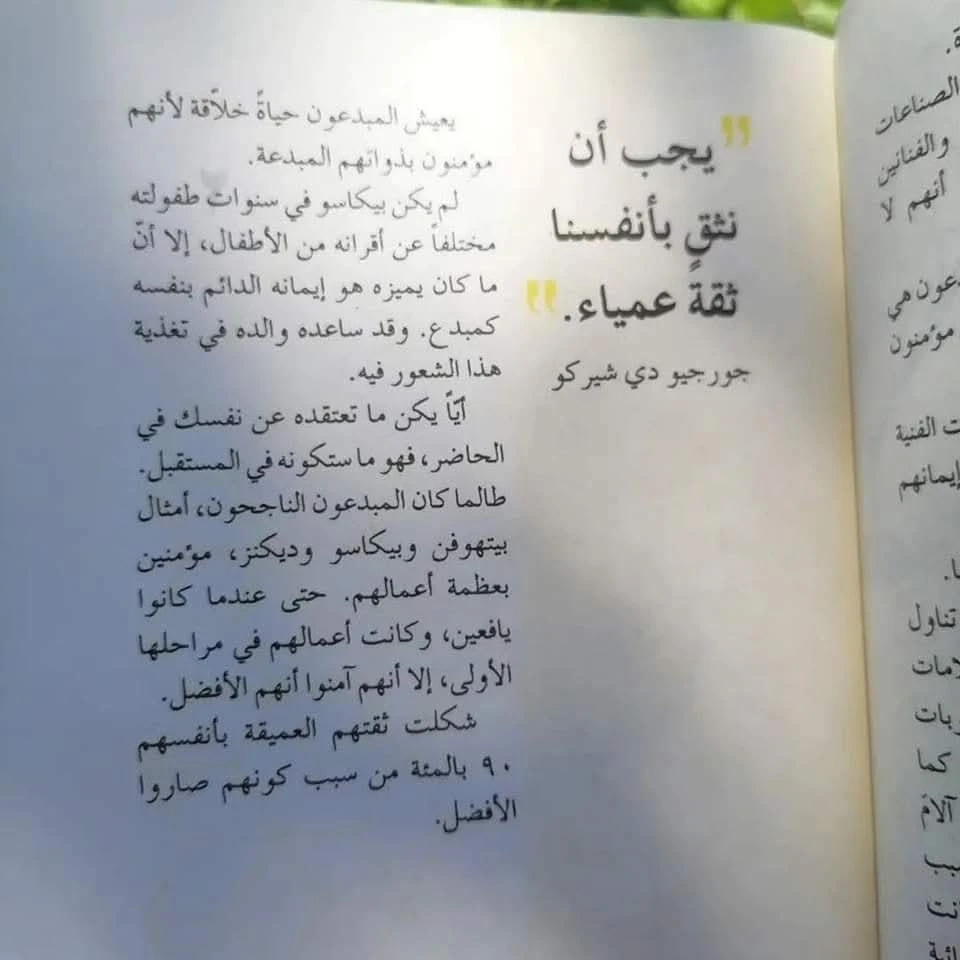 "يجب أن
نثقٍ بأنفسنا
ثقةً عمياء."
جورجيو دي شيركو
يعيش المبدعون حياةً خلاّقة لأنهم
مؤمنون بذواتهم المبدعة.
لم يكن بيكاسو في سنوات طفولته
مختلفاً عن أقرانه من الأطفال، إلا أنّ
ما كان يميزه هو إيمانه الدائم بنفسه
كمبدع. وقد ساعده والده في تغذية
هذا الشعور فيه.
أيّاً يكن ما تعتقده عن نفسك في
الحاضر، فهو ما ستكونه في المستقبل.
طالما كان المبدعون الناجحون، أمثال
بيتهوفن وبيكاسو وديكنز، مؤمنين
بعظمة أعمالهم. حتى عندما كانوا
يافعين، وكانت أعمالهم في مراحلها
الأولى، إلا أنهم آمنوا أنهم الأفضل.
شكلت ثقتهم العميقة بأنفسهم
٩٠ بالمئة من سبب كونهم صاروا
الأفضل.
الصناعات
والفنانين
أنهم لا
مؤمنون
الفنية
إيمانهم
تناول
كما
آلامَ